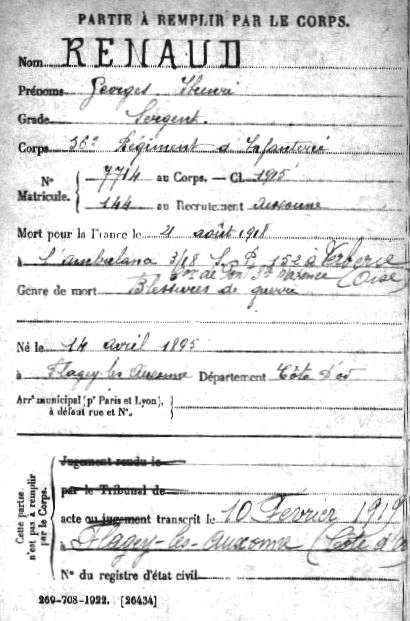 PARTIE À REMPLIR PAR LE CORPS.
Nom RENAUD
Prénoms Georges Henri
Grade Sergent
Corps 36e Régiment d'Infanterie
N° Matricule. 7714 au Corps. — Cl. 1915
144 au Recrutement Auxonne
Mort pour la France le 21 août 1918
à l'ambulance 3/18 S.P. 152 à Verberie
de Pont Ste Maxence (Oise)
Genre de mort Blessures de guerre
Né le 14 avril 1895
à Flagey les Auxonne Département Côte d'or
Arrt municipal (pr Paris et Lyon), à défaut rue et N°.
Cette partie n'est pas à remplir par le Corps.
Jugement rendu le
par le Tribunal de
acte ou jugement transcrit le 10 Février 1919
à Flagey-les-Auxonne (Côte d'or
N° du registre d'état civil
269-708-1922. [26434]